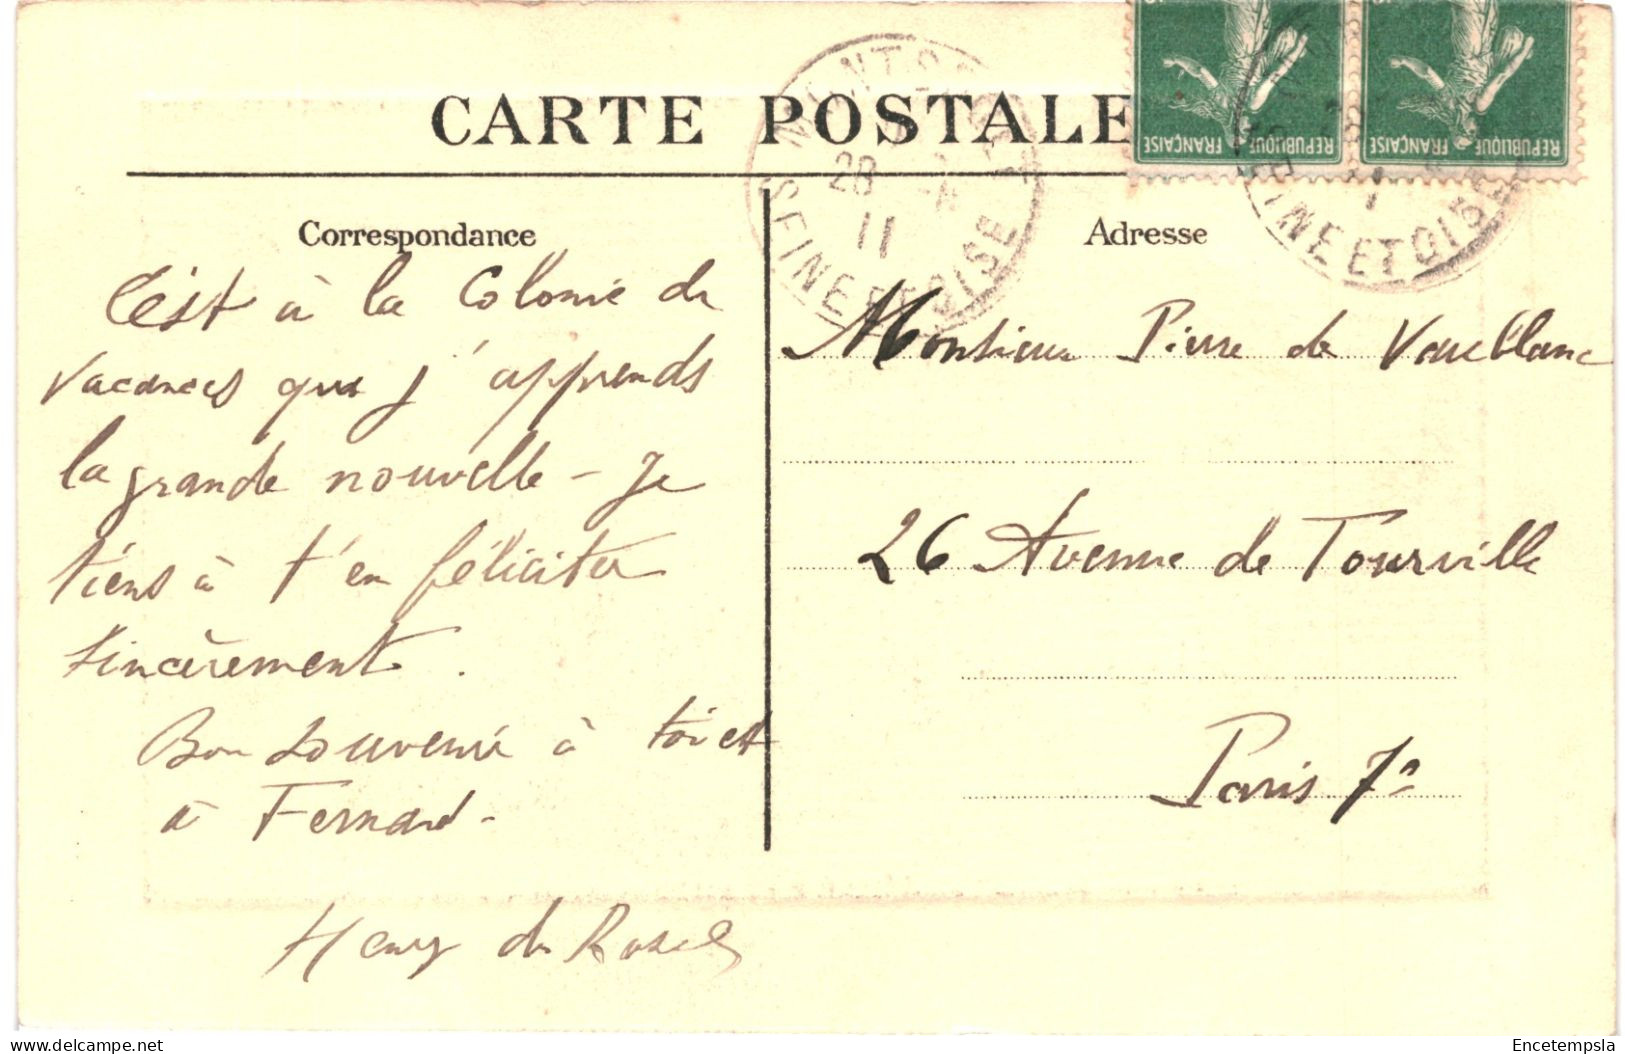 CARTE POSTALE
Correspondance
C'est à la Colonie de
vacances que j'apprends
la grande nouvelle - Je
tiens à t'en féliciter
sincèrement.
Bon souvenir à toi et
à Fernand -
Henry de
Adresse
Monsieur Pierre de Vaublanc
26 Avenue de Tourville
Paris 7e
28
11
SEINE ET OISE
REPUBLIQUE FRANÇAISE
REPUBLIQUE FRANÇAISE
SEINE ET OISE
Encetempsla